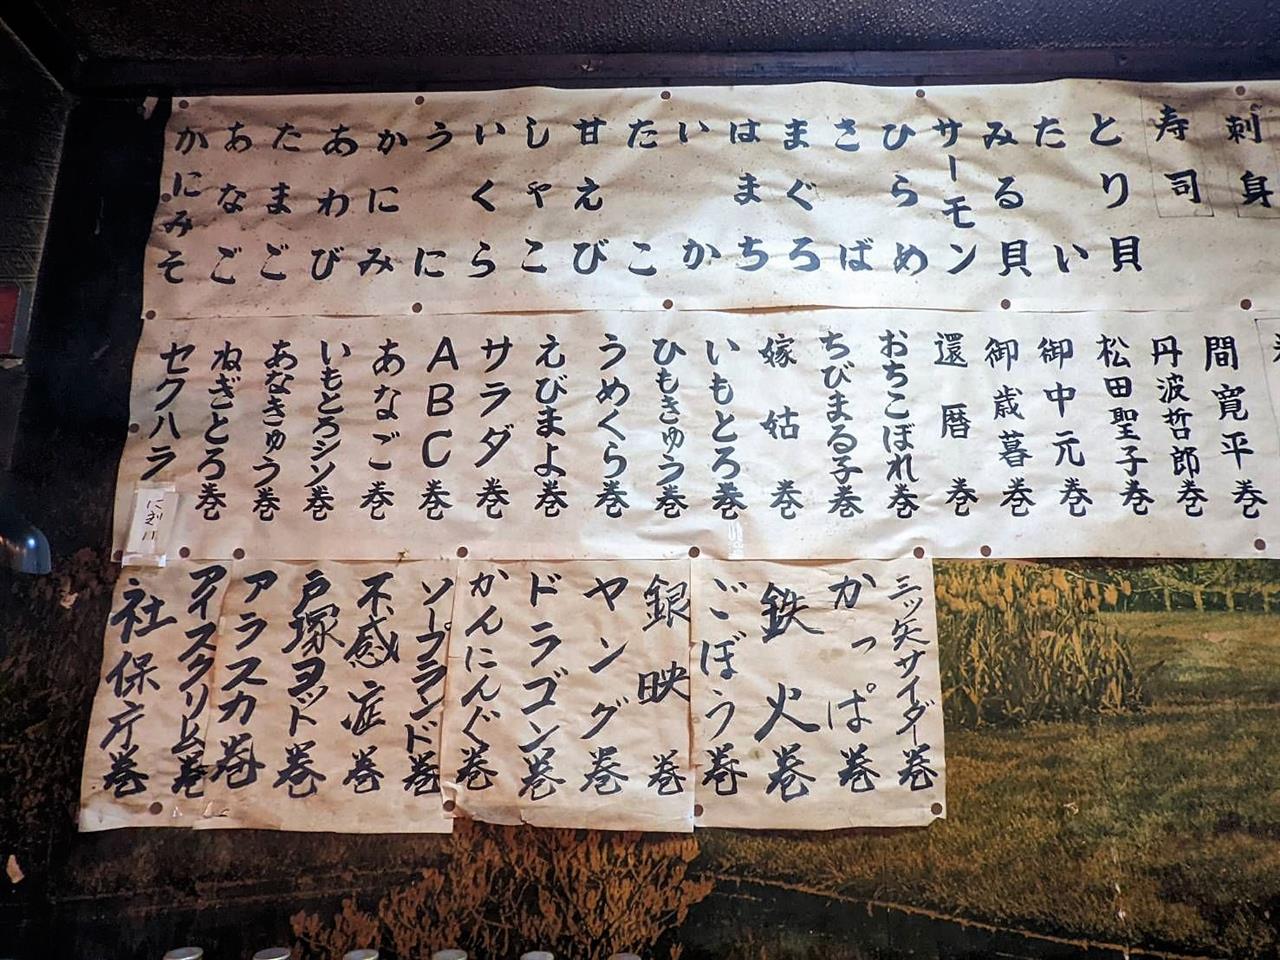 刺身
寿司
とり貝
たい
みる貝
サーモン
ひらめ
さば
まぐろ
はまち
いか
たこ
甘えび
しゃこ
いくら
うに
かにみ
あわび
たまご
あなご
かにみそ
間寛平巻
丹波哲郎巻
松田聖子巻
御中元巻
御歳暮巻
還暦巻
おちこぼれ巻
ちびまる子巻
嫁姑巻
いもとろ巻
ひもきゅう巻
うめくら巻
えびまよ巻
サラダ巻
ABC巻
あなご巻
いもとろシン巻
あなきゅう巻
ねぎとろ巻
セクハラ
にぎり
三ッ矢サイダー巻
かっぱ巻
鉄火巻
ごぼう巻
銀映巻
ヤング巻
ドラゴン巻
かんにんぐ巻
ソープランド巻
不感症巻
戸塚ヨット巻
アラスカ巻
アイスクリーム巻
社保庁巻